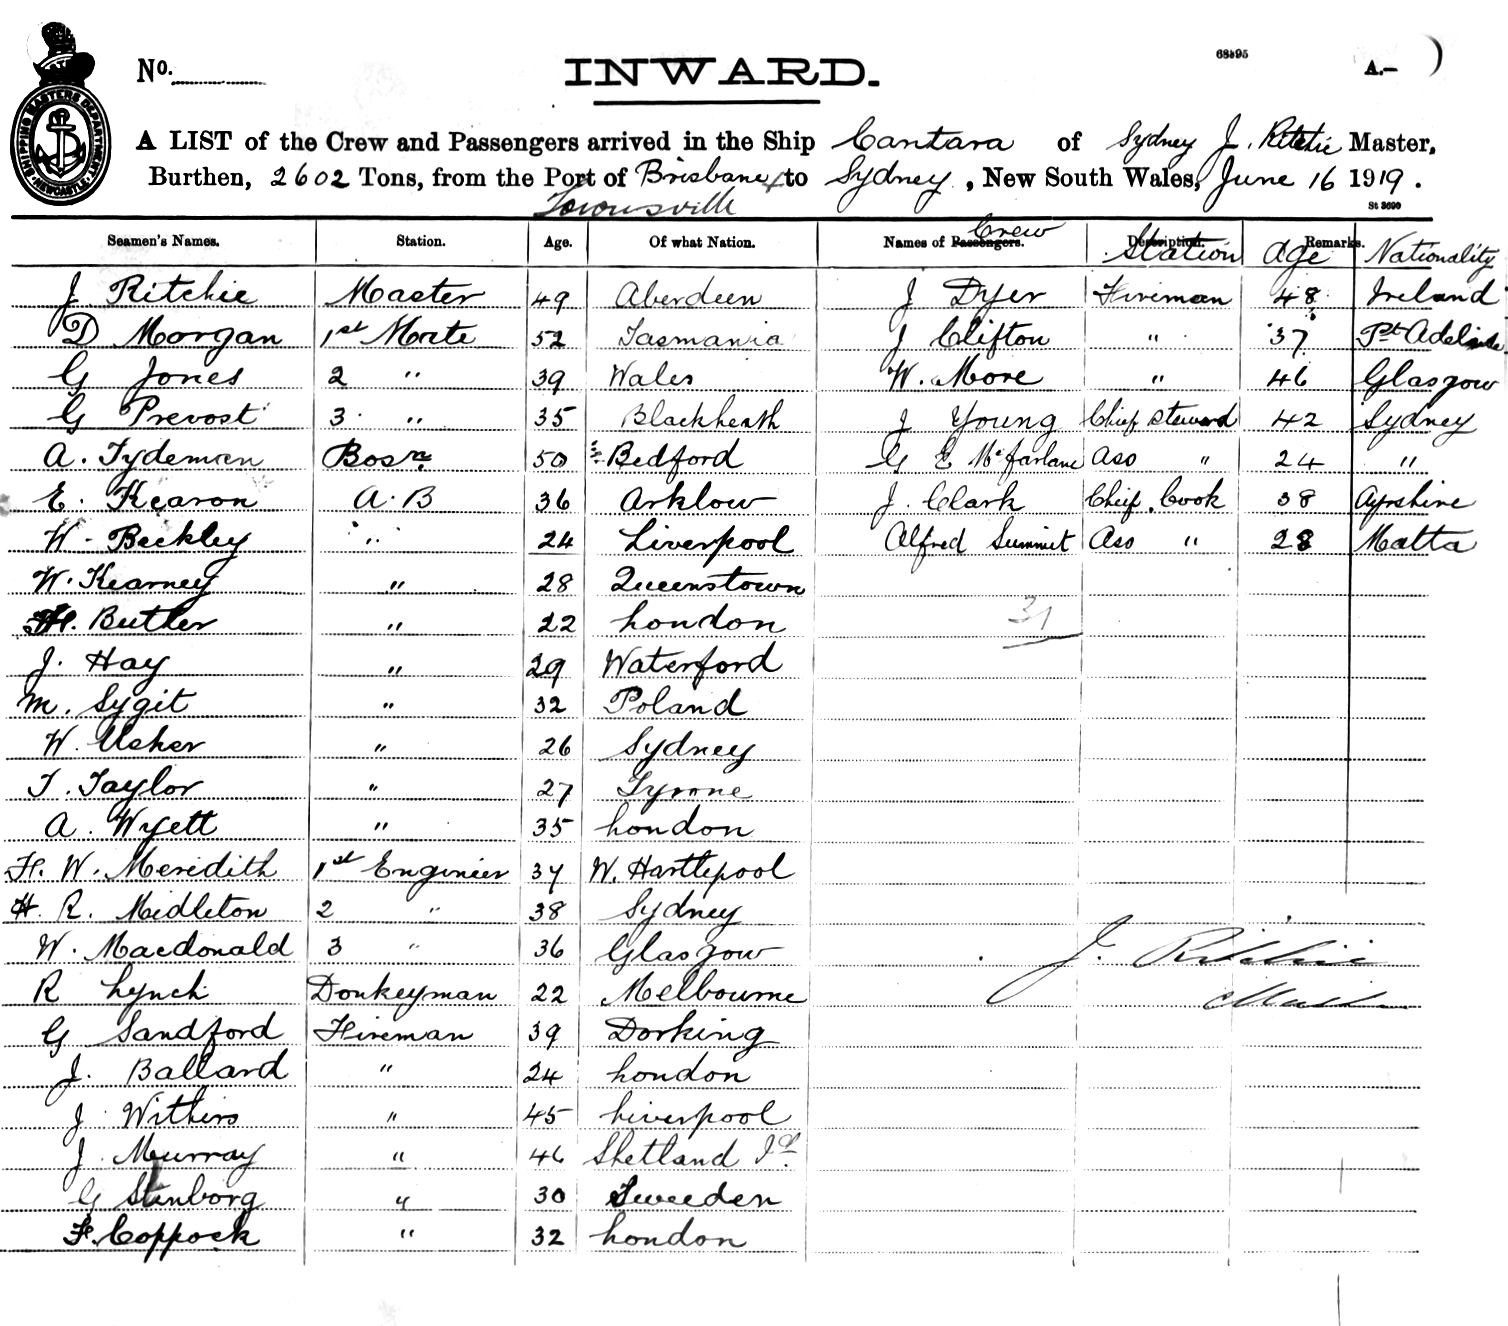 SHIPPING MASTERS DEPARTMENT NEWCASTLE
No.
INWARD.
68595
A.—
A LIST of the Crew and Passengers arrived in the Ship Cantara of Sydney J. Ritchie Master,
Burthen, 2602 Tons, from the Port of Brisbane & to Sydney, New South Wales, June 16 1919.
Townsville
St 3690
Seamen's Names. Station. Age. Of what Nation. Names of Passengers. Crew Description. Station Age Remarks. Nationality
J Ritchie Master 49 Aberdeen J Dyer Fireman 48 Ireland
D Morgan 1st Mate 52 Tasmania J Clifton " 37 Pt Adelaide
G Jones 2 " 39 Wales W. More " 46 Glasgow
G Prevost 3 " 35 Blackheath J Young Chief Steward 42 Sydney
A. Tydeman Bosn. 50 Bedford G E McFarlane Ass " 24 "
E. Kearon A.B 36 Arklow J. Clark Chief Cook 38 Ayrshire
W. Beckley " 24 Liverpool Alfred Summit Ass " 28 Malta
W. Kearney " 28 Queenstown
H. Butler " 22 London 31
J. Hay " 29 Waterford
M. Sygit " 32 Poland
W. Usher " 26 Sydney
T. Taylor " 27 Tyrone
A. Wyett " 35 London
H. W. Meredith 1st Engineer 37 W. Hartlepool
H. R. Midleton 2 " 38 Sydney
W. Macdonald 3 " 36 Glasgow J. Ritchie
R Lynch Donkeyman 22 Melbourne Mast
G Sandford Fireman 39 Dorking
J. Ballard " 24 London
J Withers " 45 Liverpool
J Murray " 46 Shetland Is.
G Stenborg " 30 Sweeden
F. Coppock " 32 London